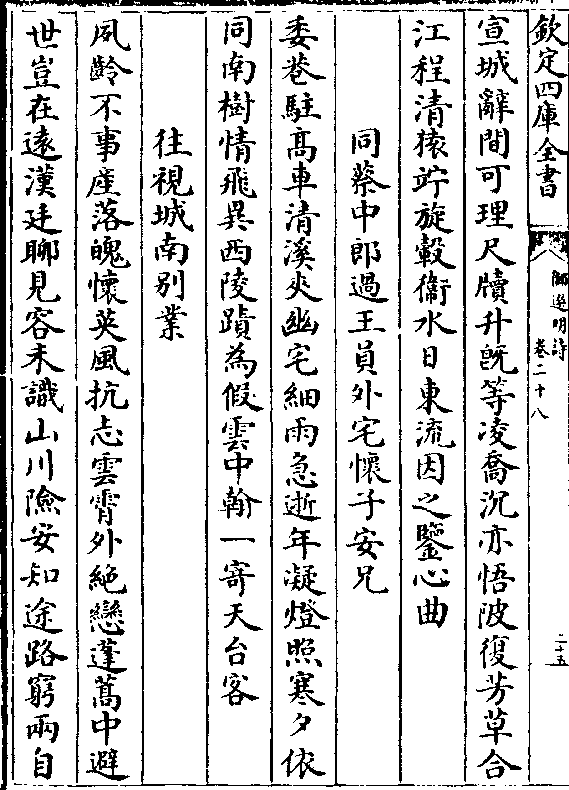 欽定四庫全書
御選明詩
卷二十八
二十五
宣城辭間可理尺牘升旣等凌喬沉亦悟陂復芳草合
江程清猿竚旋轂衞水日東流因之鑒心曲
同蔡中郎過王員外宅懷子安兄
委巷駐髙車清溪夾幽宅細雨急逝年凝燈照寒夕依
同南樹情飛異西陵蹟為假雲中翰一寄天台客
往視城南别業
夙齡不事產落魄懷英風抗志雲霄外絶戀蓬蒿中避
世豈在逺漢廷聊見容未識山川險安知途路窮兩自